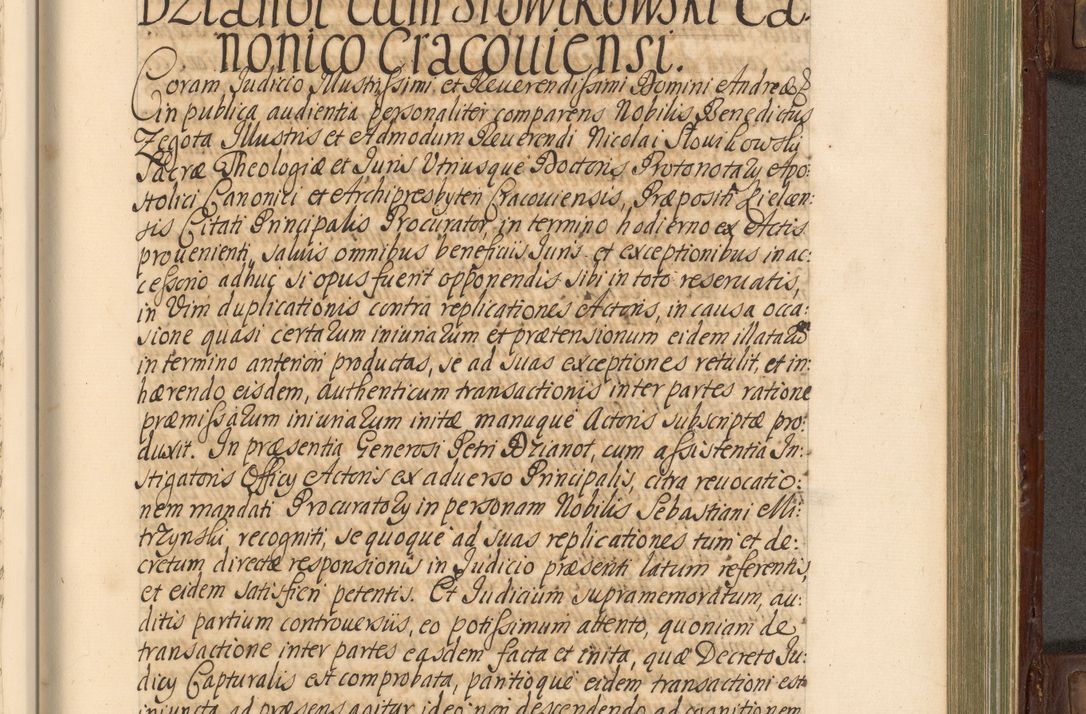 Dzianot cum Słowikowski Ca-
nonico Cracouiensi.
Coram Judicio Illustrissimi et Reuerendissimi Domini Andreæ &
in publica audientia personaliter comparens Nobilis Benedictus
Zegota Illustris et Admodum Reuerendi Nicolai Słowikowski
Sacræ Theologiæ et Juris Vtriusque Doctoris Protonotary Apo-
stolici Canonici et Archipresbyteri Cracouiensis, Præpositi Kielcen-
sis Citati Principalis Procurator, in termino hodierno ex Actis
proueniente, saluis omnibus beneficiis Juris et exceptionibus in ac:
cessorio adhuc si opus fuerit opponendis sibi in toto reseruatis,
in Vim duplicationis contra replicationes Actoris, in causa occa-
sione quasi certarum iniuriarum et prætensionum eidem illatarum
in termino anteriori productas, se ad suas exceptiones retulit, et in:
hærendo eisdem, authenticum transactionis inter partes ratione
præmissarum iniuriarum initæ manuque Actoris subscriptæ pro:
duxit. In præsentia Generosi Petri Dzianot, cum assistentia In:
stigatoris Officy Actoris ex aduerso Principalis, citra reuocatio:
nem mandati Procuratory in personam Nobilis Sebastiani Mi:
trzynski recogniti, se quoque ad suas replicationes tum et de:
cretum directæ responsionis in Judicio præsenti latum referentis,
et eidem satisfieri petentis. Et Judicium supramemoratum, au:
ditis partium controuersiis, eo potissimum attento, quoniam de
transactione inter partes easdem facta et inita, quæ Decreto Ju:
dicy Capturalis est comprobata, partioque eidem transactioni est
iniuncta ad præsens agitur ideo non descendendo ad cognitionem